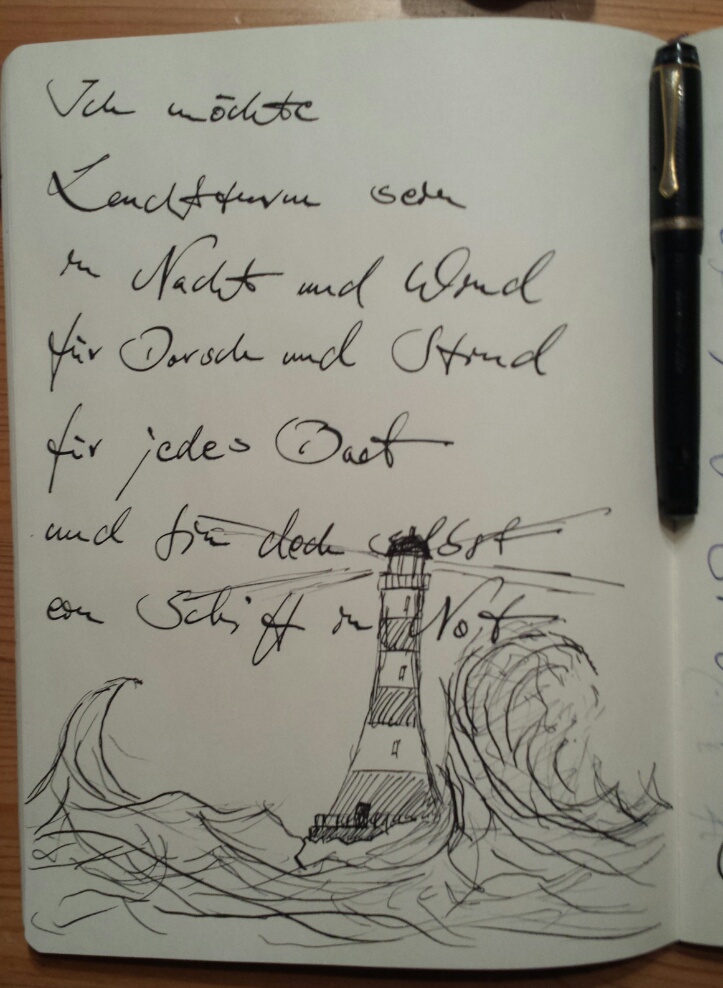 Ich möchte
Leuchtturm sein
in Nacht und Wind
für Dorsch und Stint
für jedes Boot
und bin doch selbst
ein Schiff in Not